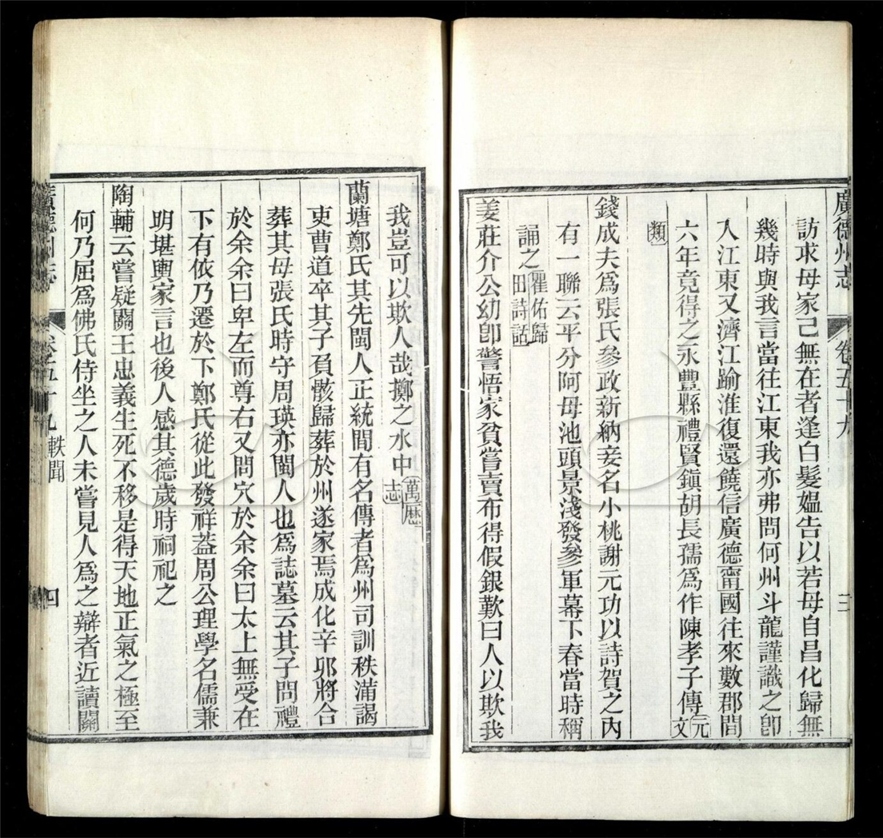 廣德州志 卷五十九 三
訪求母家已無在者逢白髮媼告以若母自昌化歸無
幾時與我言當往江東我亦弗問何州斗龍謹識之卽
入江東又濟江踰淮復還饒信廣德甯國往來數郡間
六年竟得之永豐縣禮賢鎮胡長孺爲作陳孝子傳元文
類
錢成夫爲張氏參政新納妾名小桃謝元功以詩賀之內
有一聯云平分阿母池頭景淺發參軍幕下春當時稱
誦之瞿佑歸田詩話
姜莊介公幼卽警悟家貧嘗賣布得假銀歎曰人以欺我
我豈可以欺人哉擲之水中萬歷志
蘭塘鄭氏其先閩人正統間有名傳者爲州司訓秩滿謁
吏曹道卒其子負骸歸葬於州遂家焉成化辛卯將合
葬其母張氏時守周瑛亦閩人也爲誌墓云其子問禮
於余余曰卑左而尊右又問穴於余余曰太上無受在
下有依乃遷於下鄭氏從此發祥葢周公理學名儒兼
明堪輿家言也後人感其德歲時祠祀之
陶輔云嘗疑關王忠義生死不移是得天地正氣之極至
何乃屈爲佛氏侍坐之人未嘗見人爲之辯者近讀關
廣德州志 卷五十九 軼聞 四